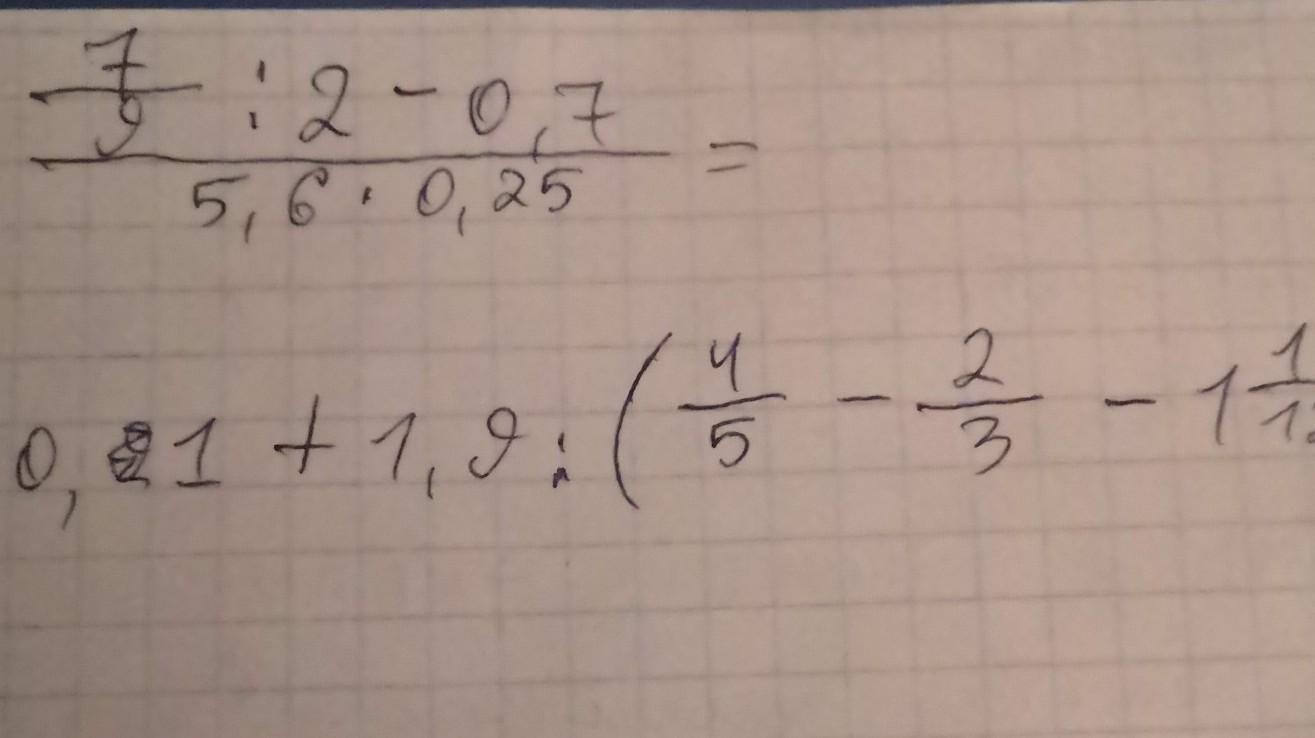 7/9 : 2 - 0,7
5,6 · 0,25 =
0,21 + 1,9 : (4/5 - 2/3 - 1 1/1